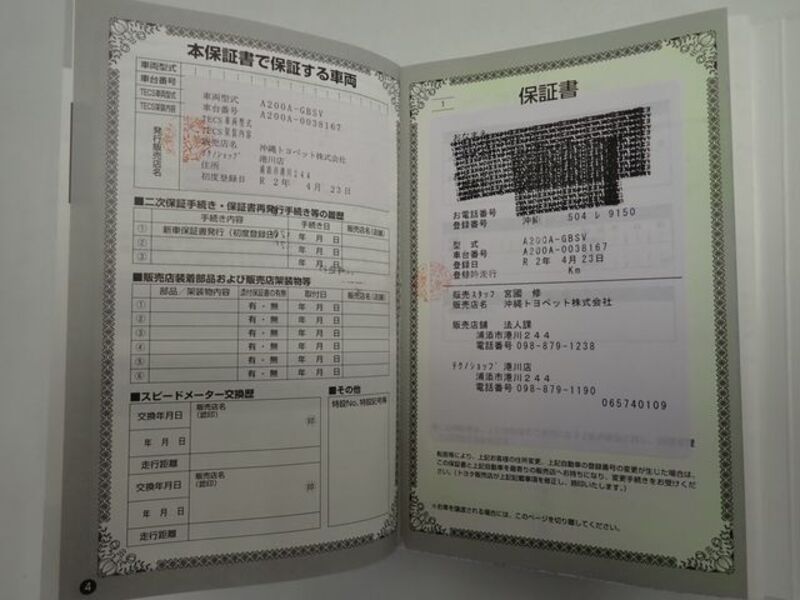 本保証書で保証する車両
車両型式
車台番号
TECS車両型式
TECS架装内容
発行販売店名
車両型式 A200A-GBSV
車台番号 A200A-0038167
TECS車両型式
TECS架装内容
販売店名 沖縄トヨペット株式会社
テクノショップ 港川店
住所 浦添市港川244
初度登録日 R 2年 4月 23日
■二次保証手続き・保証書再発行手続き等の履歴
手続き内容 手続き日 販売店名(店舗)
① 新車保証書発行(初度登録日) 年 月 日
② 年 月 日
③ 年 月 日
■販売店装着部品および販売店架装物等
部品/架装物内容 添付保証書の有無 取付日 販売店名(店舗)
① 有・無 年 月 日
② 有・無 年 月 日
③ 有・無 年 月 日
④ 有・無 年 月 日
⑤ 有・無 年 月 日
⑥ 有・無 年 月 日
■スピードメーター交換歴
交換年月日 販売店名(認印) 印
年 月 日
走行距離
交換年月日 販売店名(認印) 印
年 月 日
走行距離
■その他
特設No.特設記号等
4
1
保証書
おなまえ
お電話番号
登録番号 沖縄 504 レ 9150
型 式 A200A-GBSV
車台番号 A200A-0038167
登録日 R 2年 4月 23日
登録時走行 Km
販売スタッフ 宮國 修
販売店名 沖縄トヨペット株式会社
販売店舗 法人課
浦添市港川244
電話番号 098-879-1238
テクノショップ 港川店
浦添市港川244
電話番号 098-879-1190
065740109
転居等により、上記お客様の住所変更、上記自動車の登録番号の変更が生じた場合は、
この保証書と上記自動車を最寄りの販売店へお持ちになり、変更手続きをお受けくだ
さい。(トヨタ販売店が上記記載事項を修正し、捺印いたします。)
※お車を譲渡される場合には、このページを切り離してください。